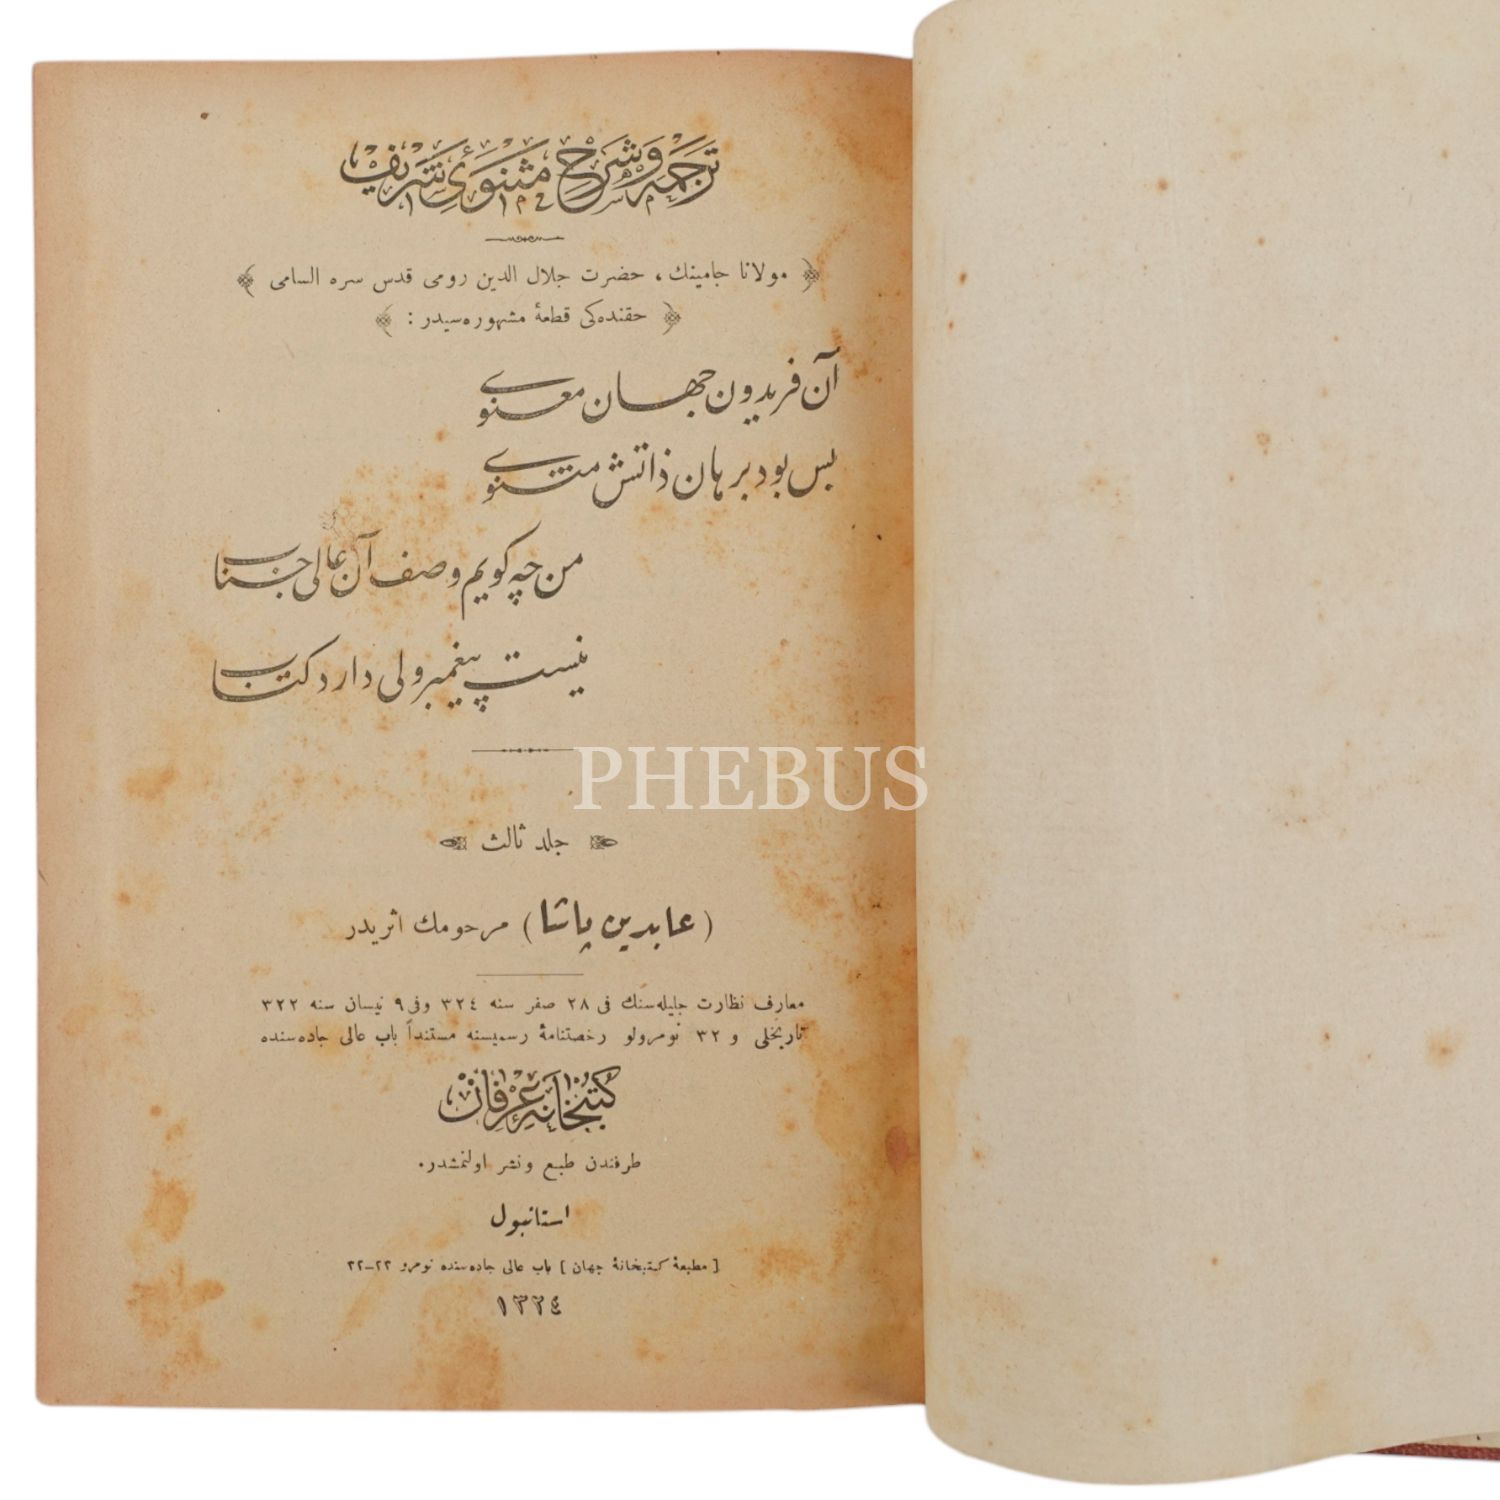 ترجمه و شرح مثنوئ شريف
مولانا جامينك ، حضرت جلال الدين رومى قدس سره السامى
حقنده‌كى قطعهٔ مشهوره‌سيدر :
آن فريدون جهان معنوى
بس بود برهان ذاتش مثنوى
من چه كويم وصف آن عالى جناب
نيست پيغمبر ولى دارد كتاب
PHEBUS
جلد ثالث
( عابدين پاشا ) مرحومك اثريدر
معارف نظارت جليله‌سنك فى ٢٨ صفر سنه ٣٢٤ وفى ٩ نيسان سنه ٣٢٢
تاريخلى و ٣٢ نومرولو رخصتنامهٔ رسميسنه مستنداً باب عالى جاده‌سنده
كتبخانه عرفان
طرفندن طبع ونشر اولنمشدر.
استانبول
[ مطبعهٔ كتبخانهٔ جهان ] باب عالى جاده‌سنده نومرو
١٣٢٤